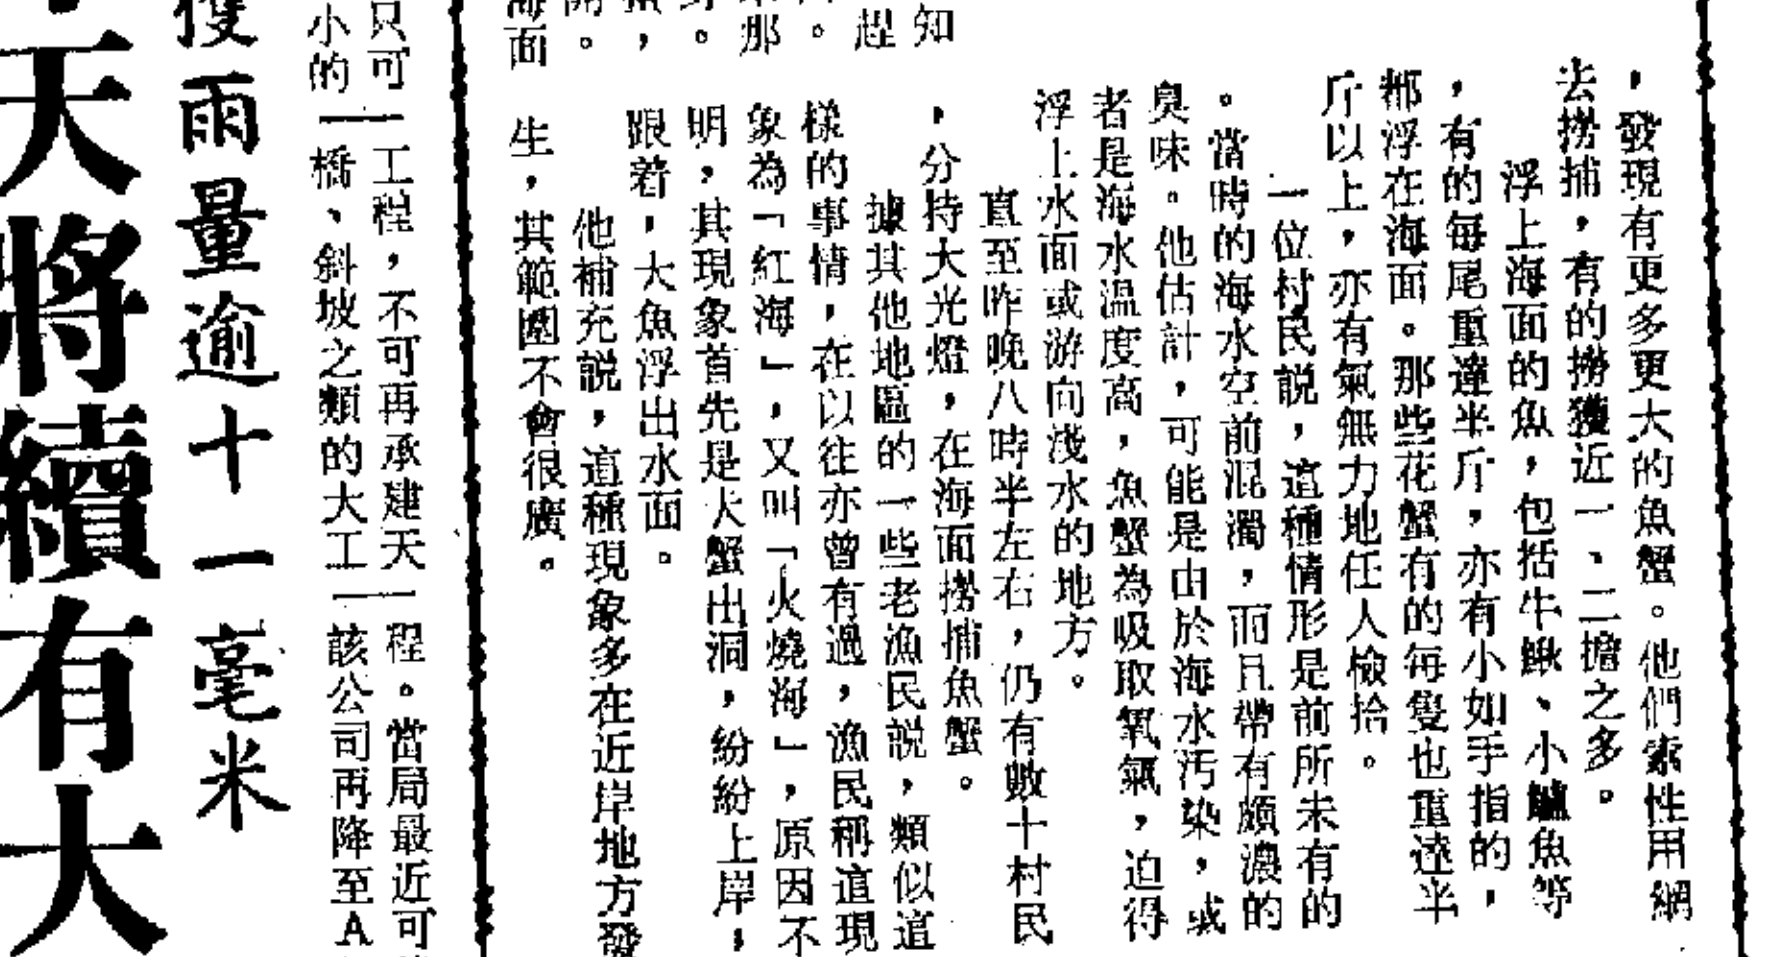 ，發現有更多更大的魚蟹。他們索性用網
去撈捕，有的撈獲近一、二擔之多。
浮上海面的魚，包括牛鰍、小鱸魚等
，有的每尾重達半斤，亦有小如手指的，
都浮在海面。那些花蟹有的每隻也重達半
斤以上，亦有氣無力地任人檢拾。
一位村民說，這種情形是前所未有的
。當時的海水空前混濁，而且帶有頗濃的
臭味。他估計，可能是由於海水污染，或
者是海水溫度高，魚蟹為吸取氧氣，迫得
浮上水面或游向淺水的地方。
直至昨晚八時半左右，仍有數十村民
，分持大光燈，在海面撈捕魚蟹。
據其他地區的一些老漁民說，類似這
樣的事情，在以往亦曾有過，漁民稱這現
象為「紅海」，又叫「火燒海」，原因不
明，其現象首先是大蟹出洞，紛紛上岸，
跟着，大魚浮出水面。
他補充說，這種現象多在近岸地方發
生，其範圍不會很廣。
知
趕
。
那
。
，
。
海面
只可
小的
一工程，不可再承建天
一橋、斜坡之類的大工
一程。當局最近可
一該公司再降至A
獲雨量逾十一毫米
天將續有大